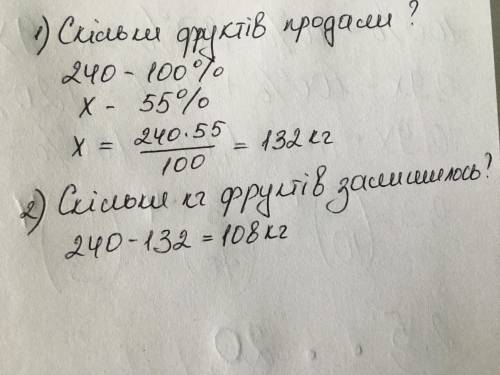 1) Скільки фруктів продали?
240 - 100%
х - 55%
х = 240·55/100 = 132 кг
2) Скільки кг фруктів залишилось?
240 - 132 = 108 кг